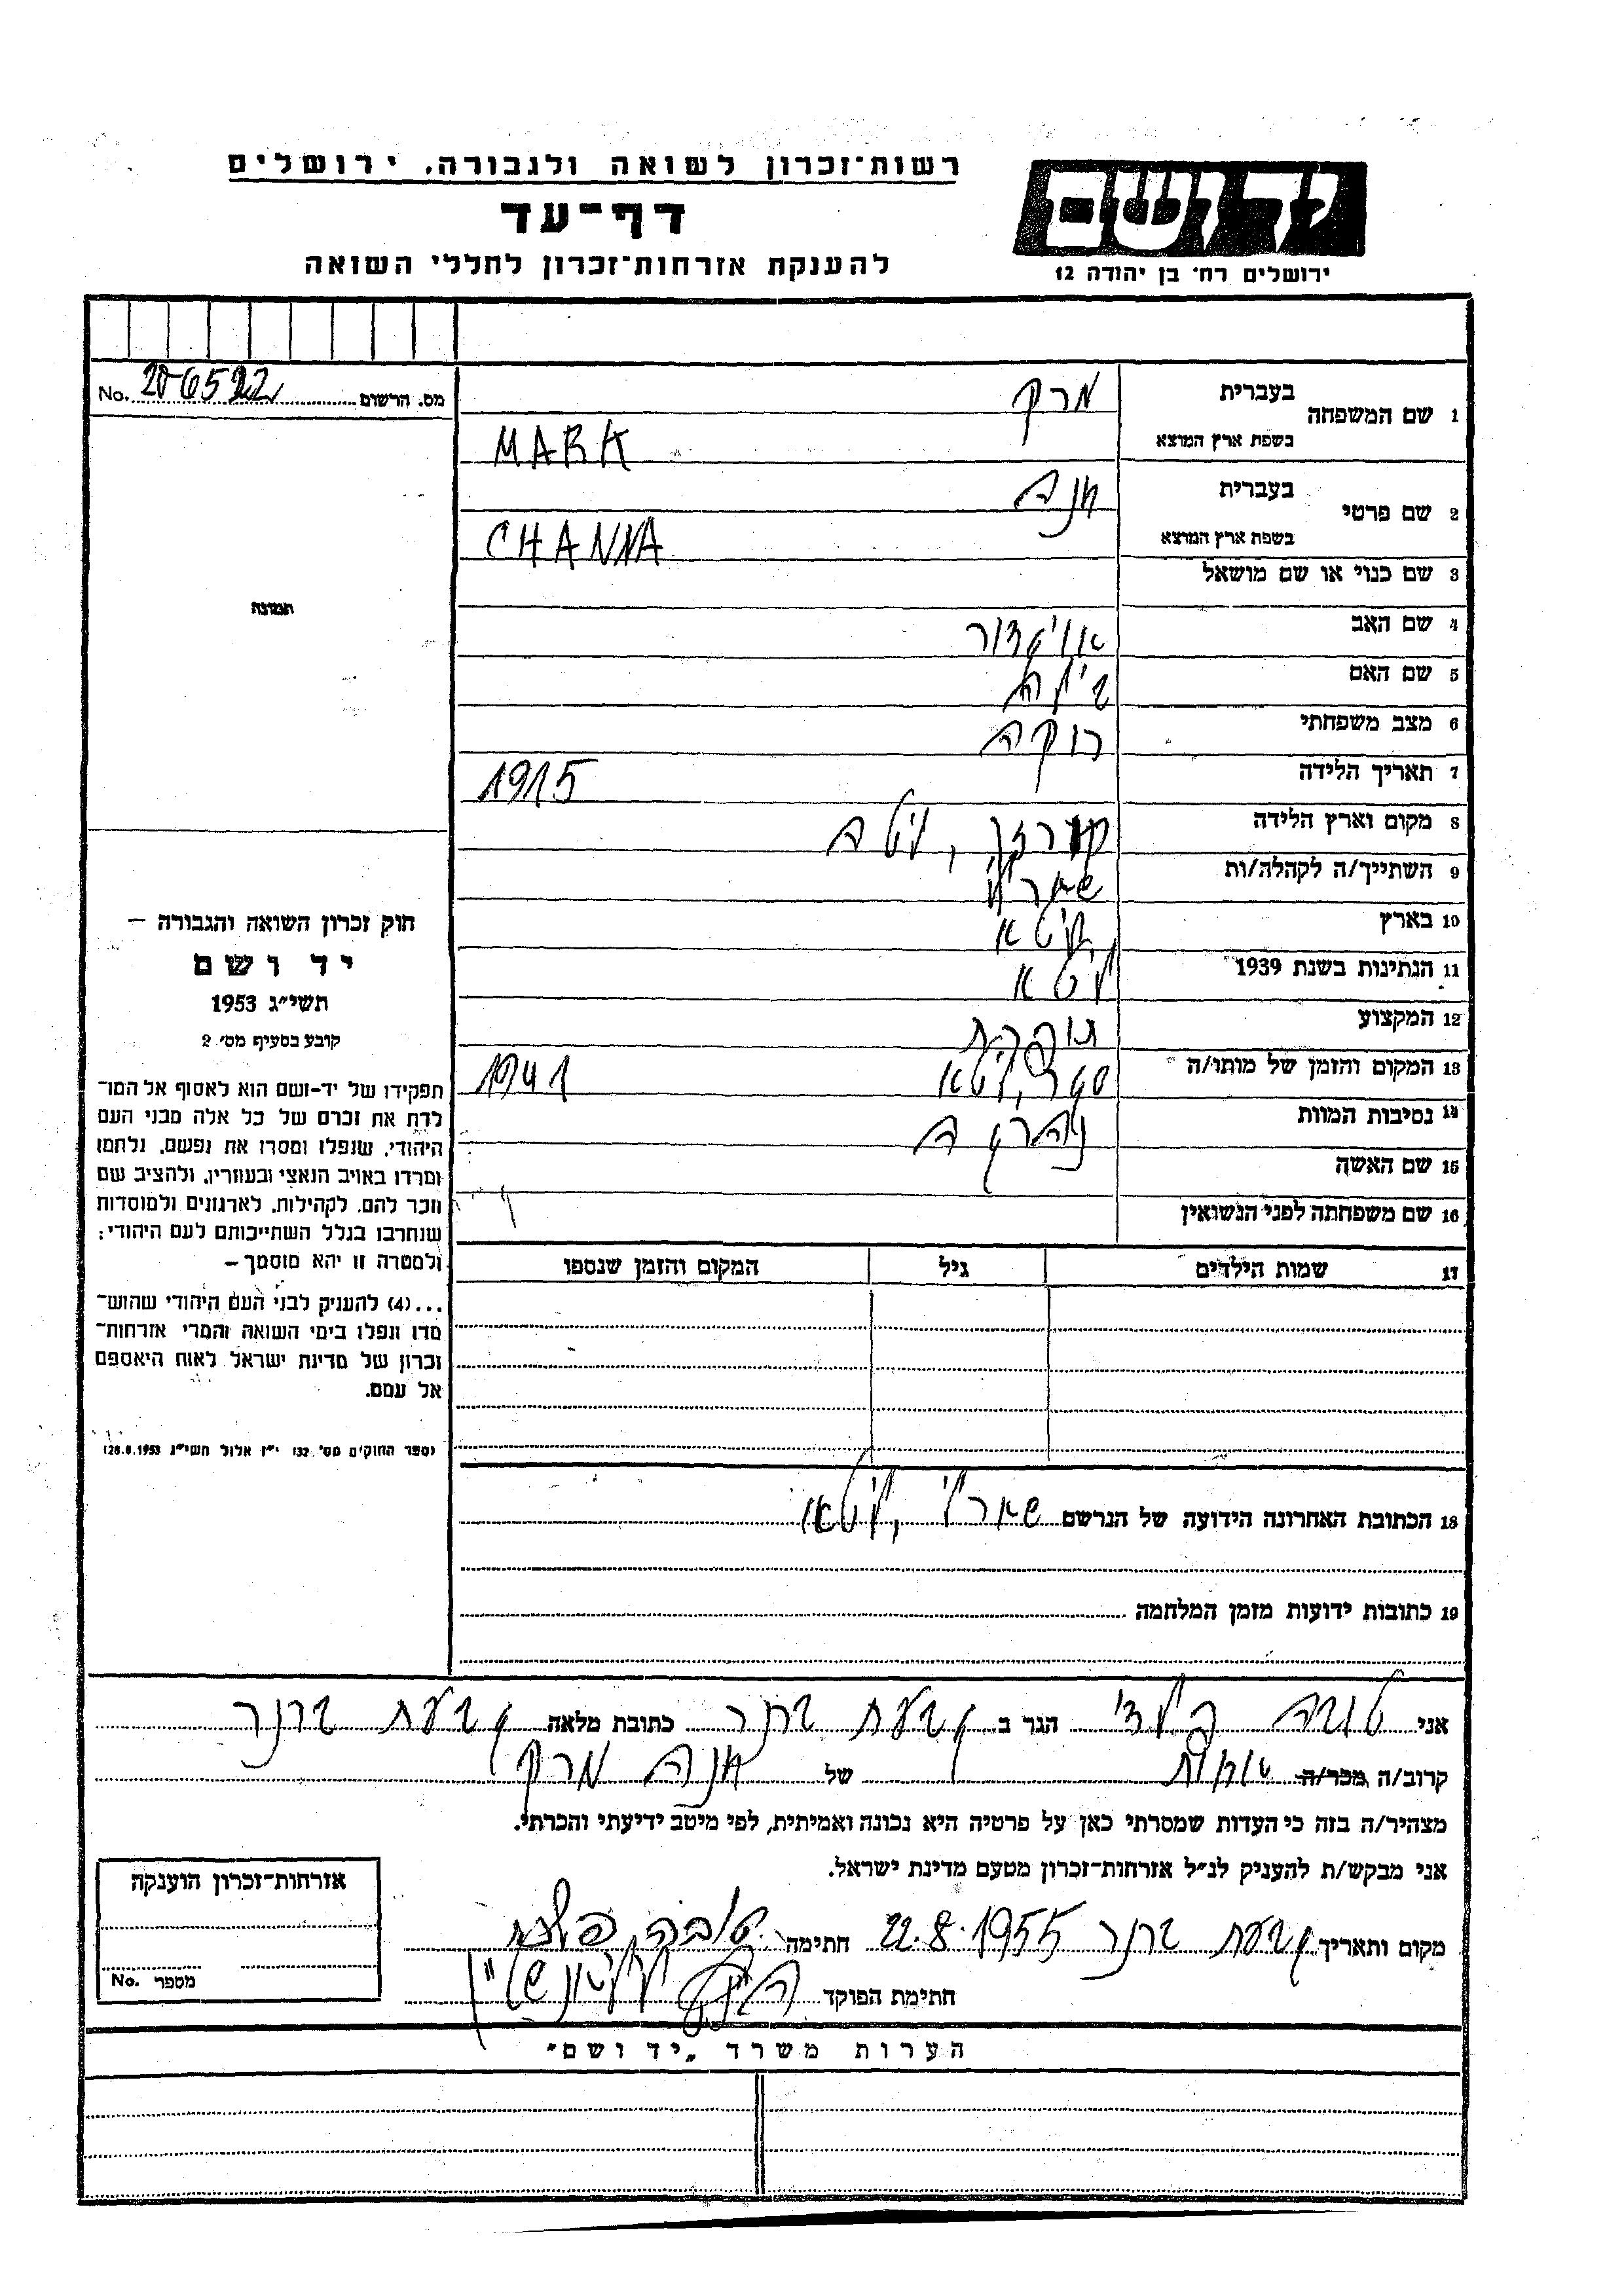 רשות־זכרון לשואה ולגבורה, ירושלים
דף־עד
להענקת אזרחות־זכרון לחללי השואה
יד ושם
ירושלים רח' בן יהודה 12
מס. הרשום 206522 No.
1 שם המשפחה
בעברית מרק
בשפת ארץ המוצא MARK
2 שם פרטי
בעברית חנה
בשפת ארץ המוצא CHANNA
3 שם כנוי או שם מושאל
4 שם האב אויגדור
5 שם האם ביילה
6 מצב משפחתי רוקה
7 תאריך הלידה 1915
8 מקום וארץ הלידה
9 השתייך/ה לקהלה/ות שאולי
10 בארץ ליטא
11 הנתינות בשנת 1939 ליטא
12 המקצוע תופרת
13 המקום והזמן של מותו/ה ליטא 1941
14 נסיבות המוות נהרגה
15 שם האשה
16 שם משפחתה לפני הנשואין
17 שמות הילדים גיל המקום והזמן שנספו
תמונה
חוק זכרון השואה והגבורה –
יד ושם
תשי״ג 1953
קובע בסעיף מס' 2
תפקידו של יד-ושם הוא לאסוף אל המו־
לדת את זכרם של כל אלה מבני העם
היהודי, שנפלו ומסרו את נפשם, נלחמו
ומרדו באויב הנאצי ובעוזריו, ולהציב שם
וזכר להם, לקהילות, לארגונים ולמוסדות
שנחרבו בגלל השתייכותם לעם היהודי;
ולמטרה זו יהא מוסמך –
...(4) להעניק לבני העם היהודי שהוש־
מדו ונפלו בימי השואה והמרי אזרחות־
זכרון של מדינת ישראל לאות היאספם
אל עמם.
(ספר החוקים מס' 132 י״ז אלול תשי״ג 28.8.1953)
18 הכתובת האחרונה הידועה של הנרשם שאולי, ליטא
19 כתובות ידועות מזמן המלחמה
אני טובה הגר ב גבעת ברנר כתובת מלאה גבעת ברנר
קרוב/ה מכר/ה אחות של חנה מרק
מצהיר/ה בזה כי העדות שמסרתי כאן על פרטיה היא נכונה ואמיתית, לפי מיטב ידיעתי והכרתי.
אני מבקש/ת להעניק לנ״ל אזרחות-זכרון מטעם מדינת ישראל.
מקום ותאריך גבעת ברנר 22.8.1955 חתימה טובה
חתימת הפוקד
אזרחות-זכרון הוענקה
מספר No.
הערות משרד „יד ושם״